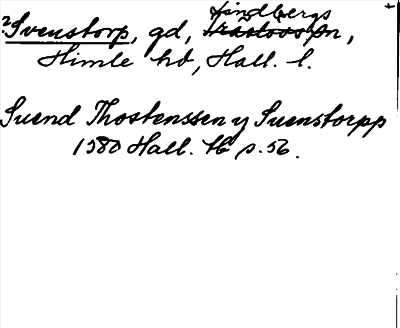 ? Svenstorp, gd, Lindbergs sn,
Himle hd, Hall. l.
Suend Thostenssen y Suenstorpp
1580 Hall. tb p. 56.